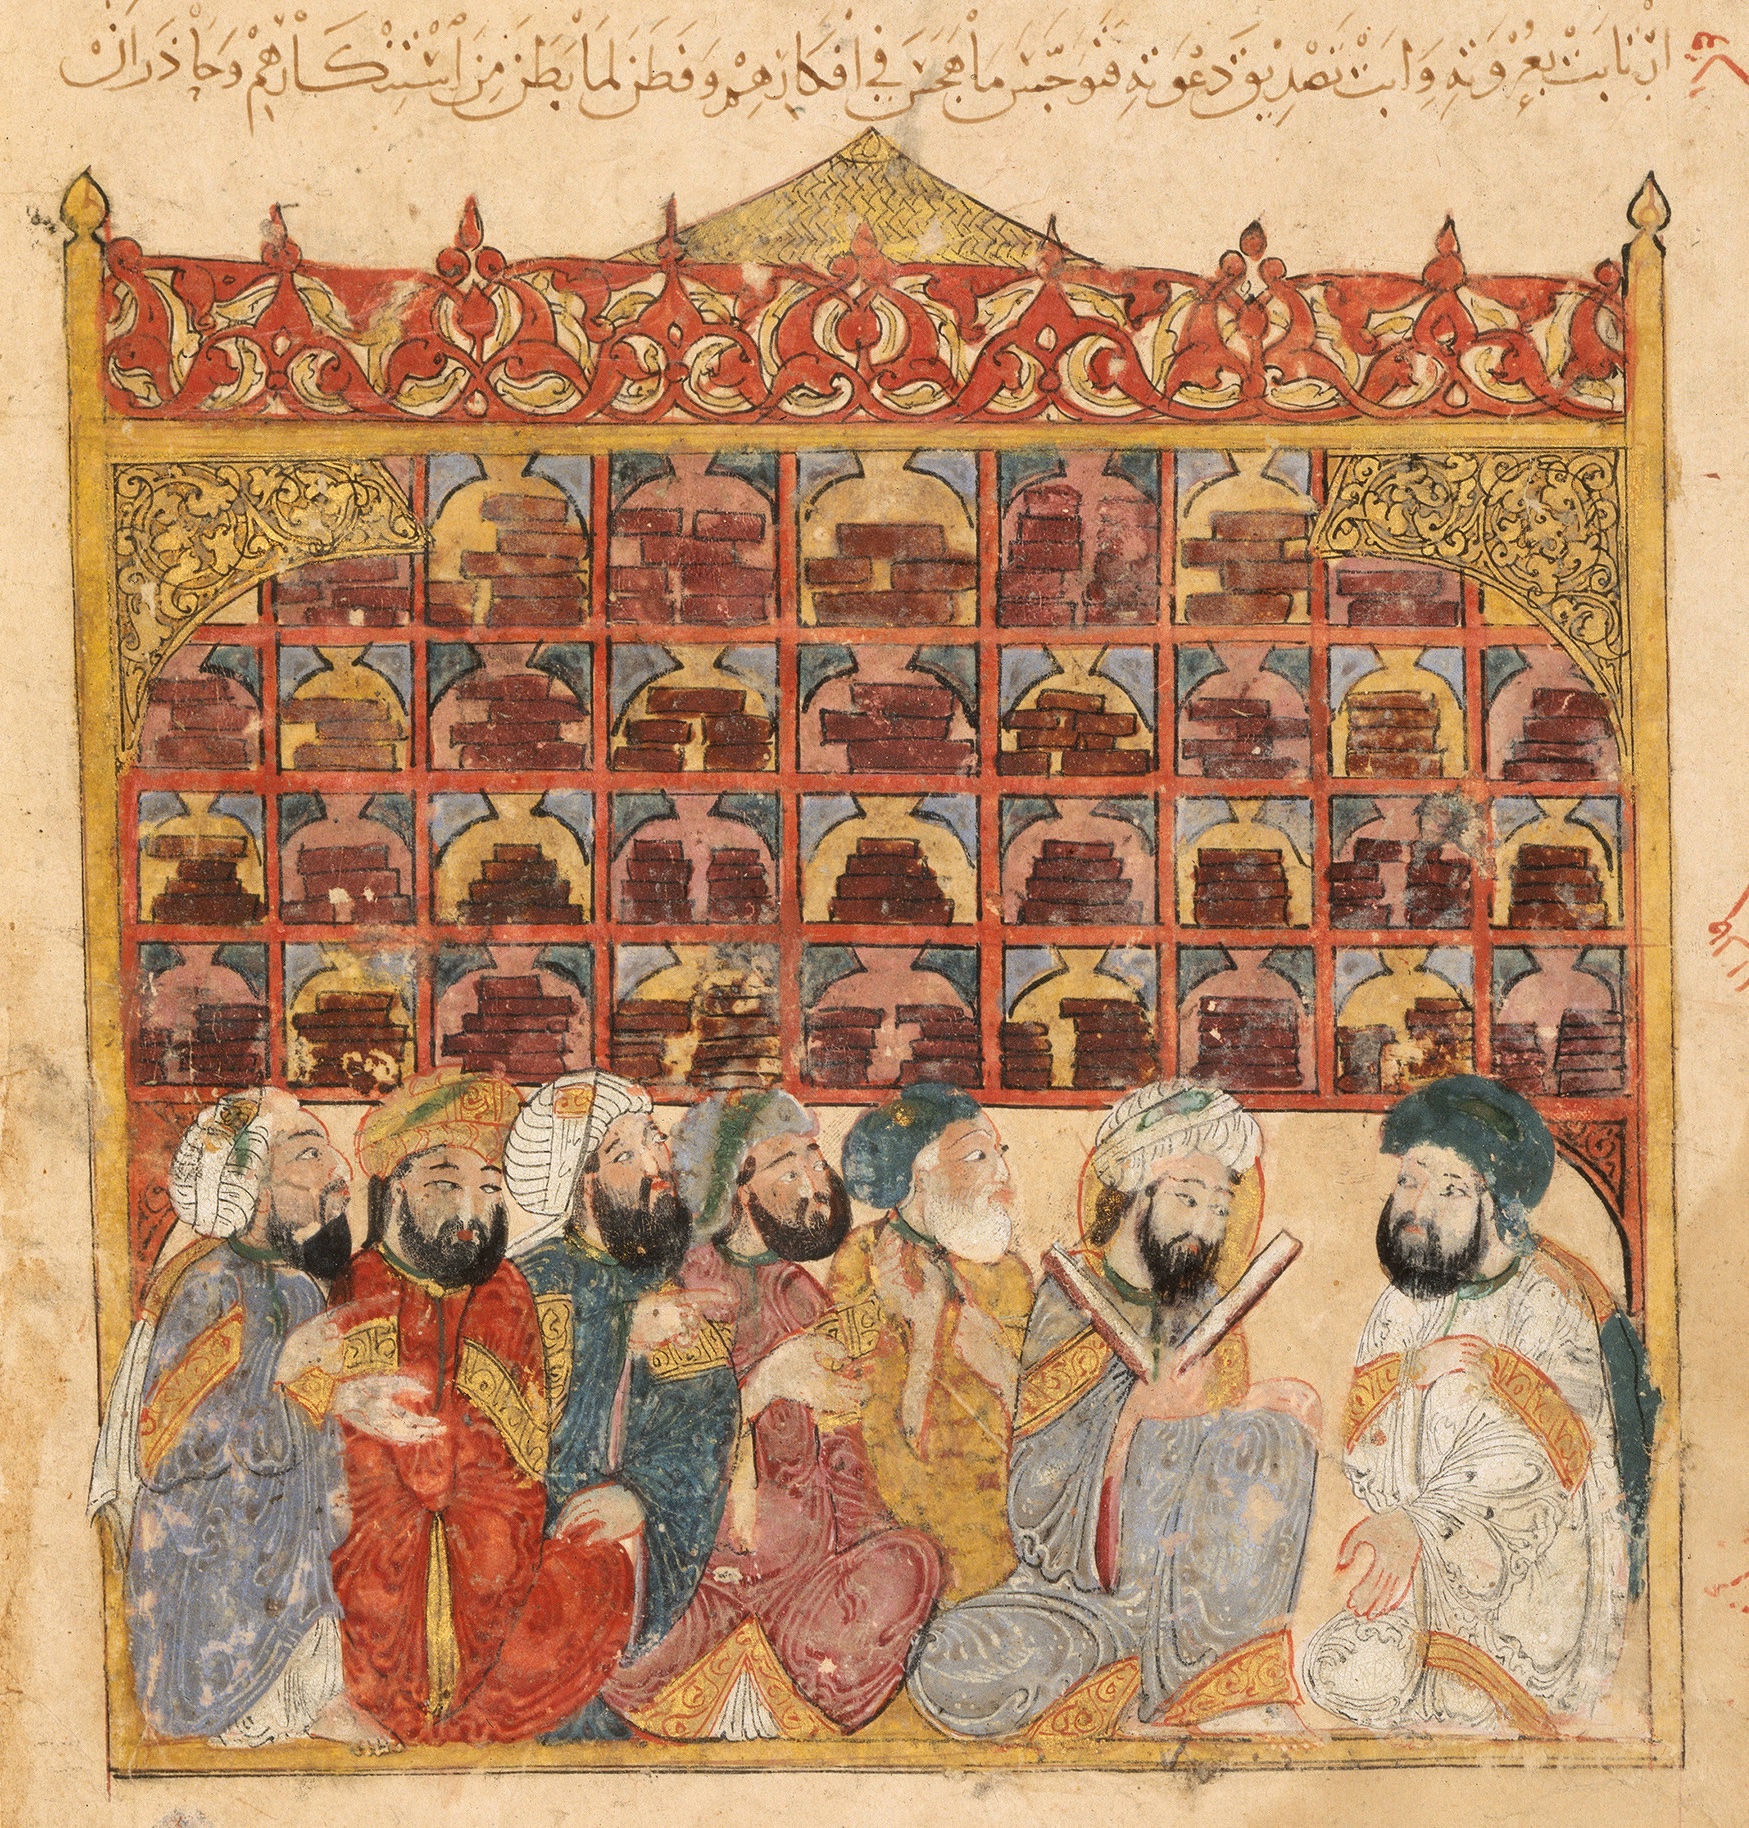 ارتابت بعزوته وابت تصديق دعوته فتوجس ما هجس في افكارهم وفطن لما بطن من استنكارهم وحاذر ان